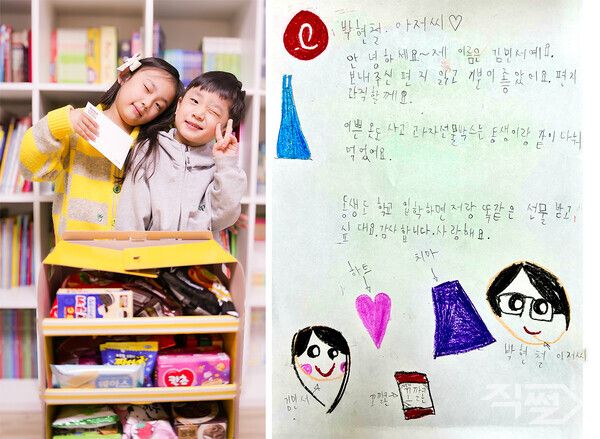 박현철 아저씨♡
안녕하세요~ 제 이름은 김민서예요.
보내주신 편지 읽고 기분이 좋았어요. 편지
간직할께요.
이쁜 옷도 사고 과자선물박스는 동생이랑 같이 나눠
먹었어요.
동생도 학교 입학하면 저랑 똑같은 선물 받고
싶대요. 감사합니다. 사랑해요.
하트
치마
박현철 아저씨
김민서
직썰